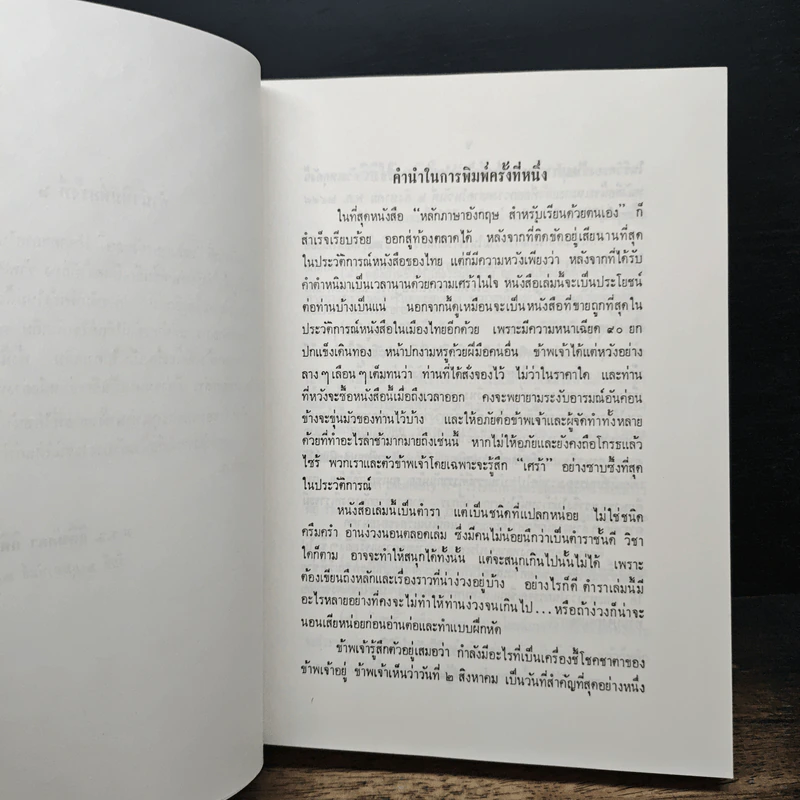 คำนำในการพิมพ์ครั้งที่หนึ่ง
ในที่สุดหนังสือ “หลักภาษาอังกฤษ สำหรับเรียนด้วยตนเอง” ก็
สำเร็จเรียบร้อย ออกสู่ท้องตลาดได้ หลังจากที่ติดขัดอยู่เสียนานที่สุด
ในประวัติการณ์หนังสือของไทย แต่ก็มีความหวังเพียงว่า หลังจากที่ได้รับ
คำตำหนิมาเป็นเวลานานด้วยความเศร้าในใจ หนังสือเล่มนี้จะเป็นประโยชน์
ต่อท่านบ้างเป็นแน่ นอกจากนี้ดูเหมือนจะเป็นหนังสือที่ขายถูกที่สุดใน
ประวัติการณ์หนังสือในเมืองไทยอีกด้วย เพราะมีความหนาเฉียด ๙๐ ยก
ปกแข็งเดินทอง หน้าปกงามหรูด้วยฝีมือคนอื่น ข้าพเจ้าได้แต่หวังอย่าง
ลางๆเลือนๆเต็มทนว่า ท่านที่ได้สั่งจองไว้ ไม่ว่าในราคาใด และท่าน
ที่หวังจะซื้อหนังสือนี้เมื่อถึงเวลาออก คงจะพยายามระงับอารมณ์อันค่อน
ข้างจะขุ่นมัวของท่านไว้บ้าง และให้อภัยต่อข้าพเจ้าและผู้จัดทำทั้งหลาย
ด้วยที่ทำอะไรล่าช้ามากมายถึงเช่นนี้ หากไม่ให้อภัยและยังคงถือโกรธแล้ว
ไซร้ พวกเราและตัวข้าพเจ้าโดยเฉพาะจะรู้สึก “เศร้า” อย่างซาบซึ้งที่สุด
ในประวัติการณ์
หนังสือเล่มนี้เป็นตำรา แต่เป็นชนิดที่แปลกหน่อย ไม่ใช่ชนิด
ครึมครำ อ่านง่วงนอนตลอดเล่ม ซึ่งมีคนไม่น้อยนึกว่าเป็นตำราชั้นดี วิชา
ใดก็ตาม อาจจะทำให้สนุกได้ทั้งนั้น แต่จะสนุกเกินไปนั้นไม่ได้ เพราะ
ต้องเขียนถึงหลักและเรื่องราวที่น่าง่วงอยู่บ้าง อย่างไรก็ดี ตำราเล่มนี้มี
อะไรหลายอย่างที่คงจะไม่ทำให้ท่านง่วงจนเกินไป...หรือถ้าง่วงก็น่าจะ
นอนเสียหน่อยก่อนอ่านต่อและทำแบบฝึกหัด
ข้าพเจ้ารู้สึกตัวอยู่เสมอว่า กำลังมีอะไรที่เป็นเครื่องชี้โชคชาตาของ
ข้าพเจ้าอยู่ ข้าพเจ้าเห็นว่าวันที่ ๒ สิงหาคม เป็นวันที่สำคัญที่สุดอย่างหนึ่ง